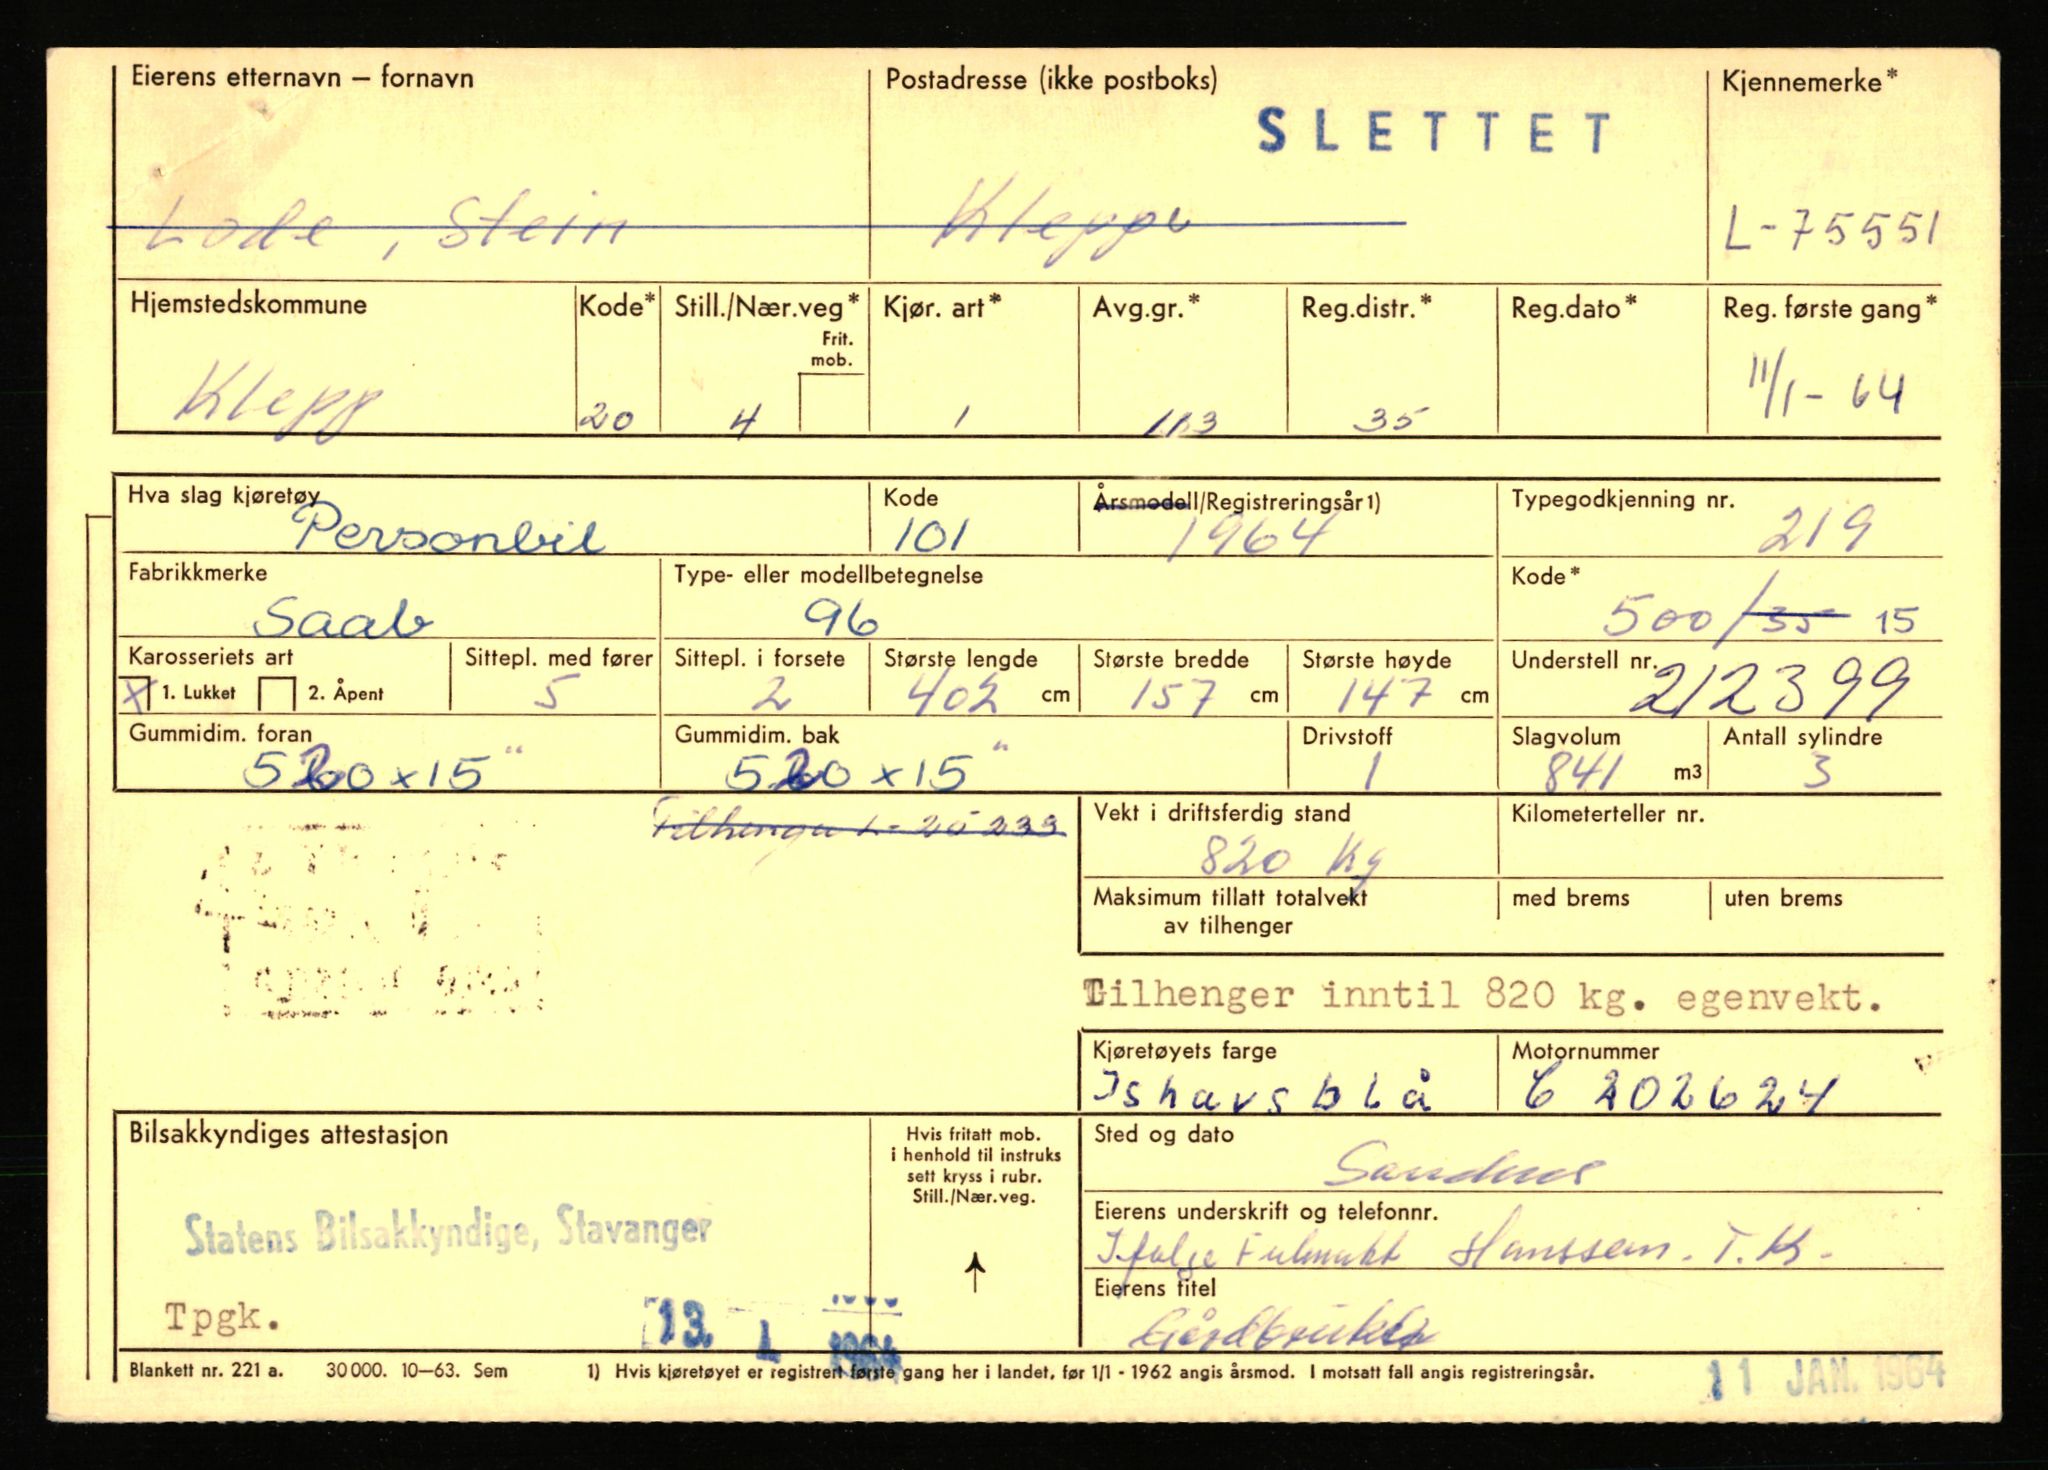 Eierens etternavn — fornavn Postadresse (ikke postboks) Kjennemerke*
SLETTET
Lode, Stein Kleppe L-75551
Hjemstedskommune Kode* Still./Nær.veg* Kjør. art* Avg.gr.* Reg.distr.* Reg.dato* Reg. første gang*
Frit.
mob.
Klepp 20 4 1 113 35 11/1-64
Hva slag kjøretøy Kode Årsmodell/Registreringsår 1) Typegodkjenning nr.
Personbil 101 1964 219
Fabrikkmerke Type- eller modellbetegnelse Kode*
Saab 96 500/35 15
Karosseriets art Sittepl. med fører Sittepl. i forsete Største lengde Største bredde Største høyde Understell nr.
X 1. Lukket 2. Åpent 5 2 402 cm 157 cm 147 cm 212399
Gummidim. foran Gummidim. bak Drivstoff Slagvolum Antall sylindre
520x15" 520x15" 1 841 m3 3
Tilhenger L-20233 Vekt i driftsferdig stand Kilometerteller nr.
820 kg
Maksimum tillatt totalvekt med brems uten brems
av tilhenger
Tilhenger inntil 820 kg. egenvekt.
Kjøretøyets farge Motornummer
Ishavsblå C 202624
Bilsakkyndiges attestasjon Hvis fritatt mob. Sted og dato
i henhold til instruks
sett kryss i rubr.
Still./Nær.veg.
Sandnes
Eierens underskrift og telefonnr.
Statens Bilsakkyndige, Stavanger
Ifølge Fullmakt Hanssen. T.K.
Eierens titel
Tpgk. 13. 1 1964 Gårdbruker
Blankett nr. 221 a. 30 000. 10—63. Sem 1) Hvis kjøretøyet er registrert første gang her i landet, før 1/1 - 1962 angis årsmod. I motsatt fall angis registreringsår.
11 JAN. 1964